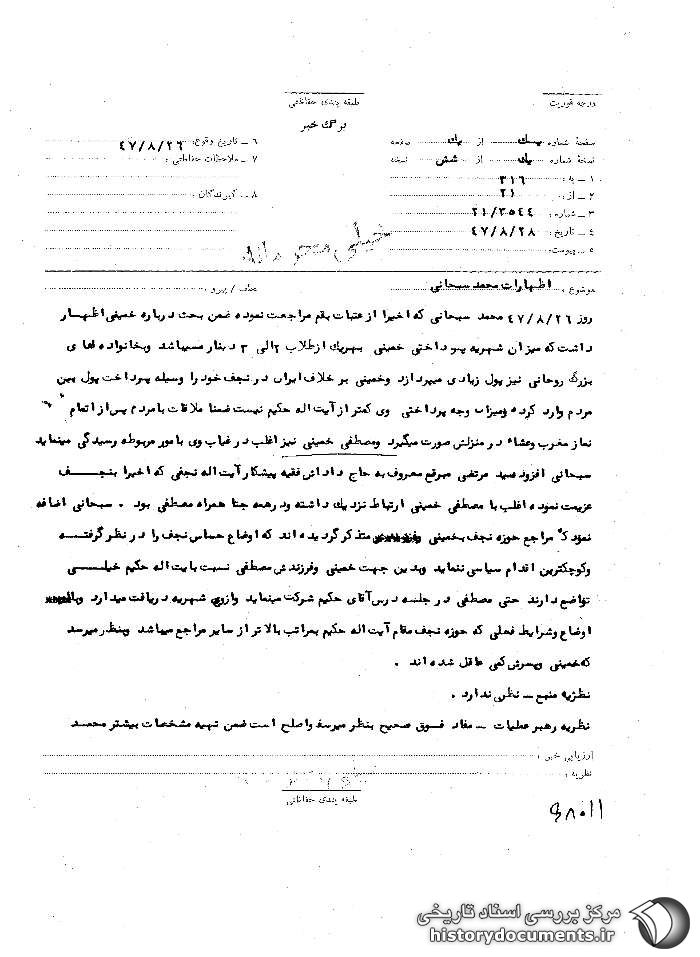 درجه فوریت
طبقه بندی حفاظتی
برگ خبر
صفحه شماره یک از یک صفحه
نسخه شماره یک از شش نسخه
۱ ـ به : ۳۱۶
۲ ـ از : ۲۱
۳ ـ شماره : ۲۱/۳۵۴۴
۴ ـ تاریخ : ۴۷/۸/۲۸
۵ ـ پیوست :
۶ ـ تاریخ وقوع : ۴۷/۸/۲۶
۷ ـ ملاحظات حفاظتی :
۸ ـ گیرندگان :
خیلی محرمانه
موضوع : اظهارات محمد سبحانی
عطف / پیرو :
روز ۴۷/۸/۲۶ محمد سبحانی که اخیرا از عتبات بقم مراجعت نموده ضمن بحث درباره خمینی اظهار
داشت که میزان شهریه پرداختی خمینی بهریک از طلاب ۲ الی ۳ دینار میباشد و بخانواده های
بزرگ روحانی نیز پول زیادی میپردازد و خمینی بر خلاف ایران در نجف خود را وسیله پرداخت پول بین
مردم وارد کرده و میزان وجه پرداختی وی کمتر از آیت اله حکیم نیست ضمنا ملاقات با مردم پس از اتمام
نماز مغرب و عشاء در منزلش صورت میگیرد و مصطفی خمینی نیز اغلب در غیاب وی با مور مربوطه رسیدگی مینماید
سبحانی افزود سید مرتضی مبرقع معروف به حاج داداش فقیه پیشکار آیت اله نجفی که اخیرا بنجف
عزیمت نموده اغلب با مصطفی خمینی ارتباط نزدیک داشته و در همه جا همراه مصطفی بود . سبحانی اضافه
نمود که مراجع حوزه نجف بخمینی متذکر گردیده اند که اوضاع حساس نجف را در نظر گرفته
و کوچکترین اقدام سیاسی ننماید و بدین جهت خمینی و فرزندش مصطفی نسبت بایت اله حکیم خیلی
تواضع دارند حتی مصطفی در جلسه درس آقای حکیم شرکت مینماید و از وی شهریه دریافت میدارد و با
اوضاع و شرایط فعلی که حوزه نجف مقام آیت اله حکیم بمراتب بالاتر از سایر مراجع میباشد و بنظر میرسد
که خمینی و پسرش کمی عاقل شده اند .
نظریه منبع ـ نظری ندارد .
نظریه رهبر عملیات ـ مفاد فوق صحیح بنظر میرسد و اصلح است ضمن تهیه مشخصات بیشتر محمد
ارزیابی خبر :
نظریه :
طبقه بندی حفاظتی
مرکز بررسی اسناد تاریخی
historydocuments.ir